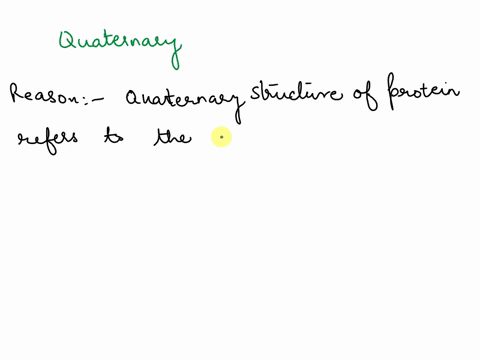 Quaternary
Reason:- Quaternary structure of protein
refers to the